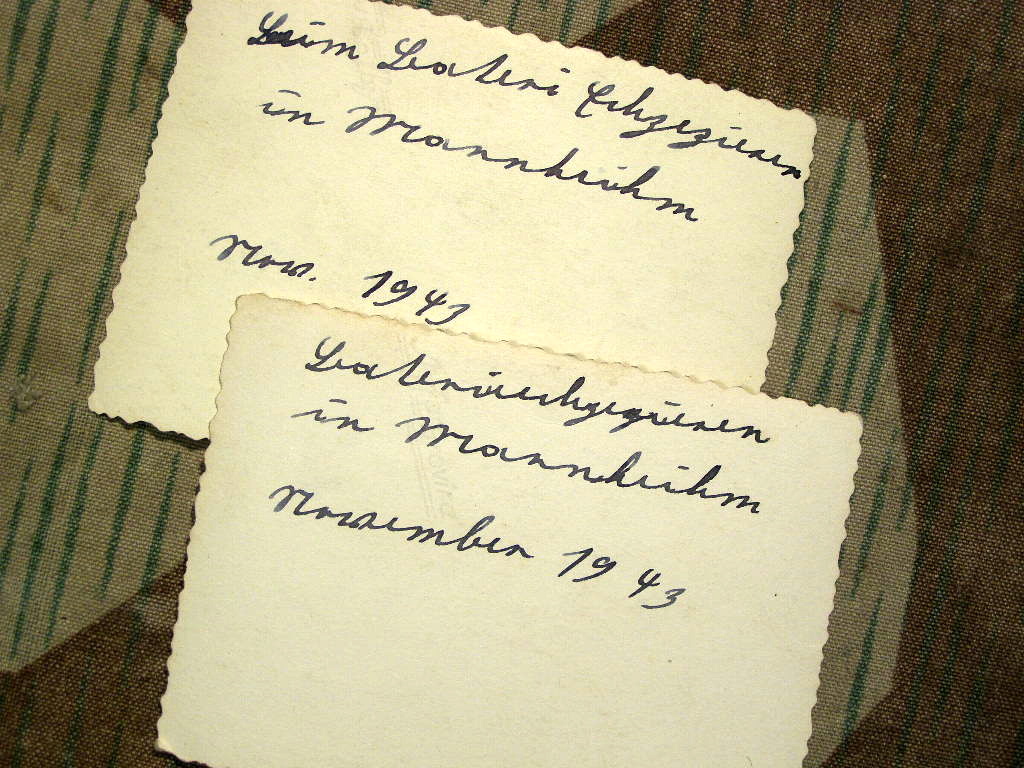 Beim Bateri Echzezieren
in Mannheihm
Nov. 1943
Bateriechzezieren
in Mannheihm
November 1943